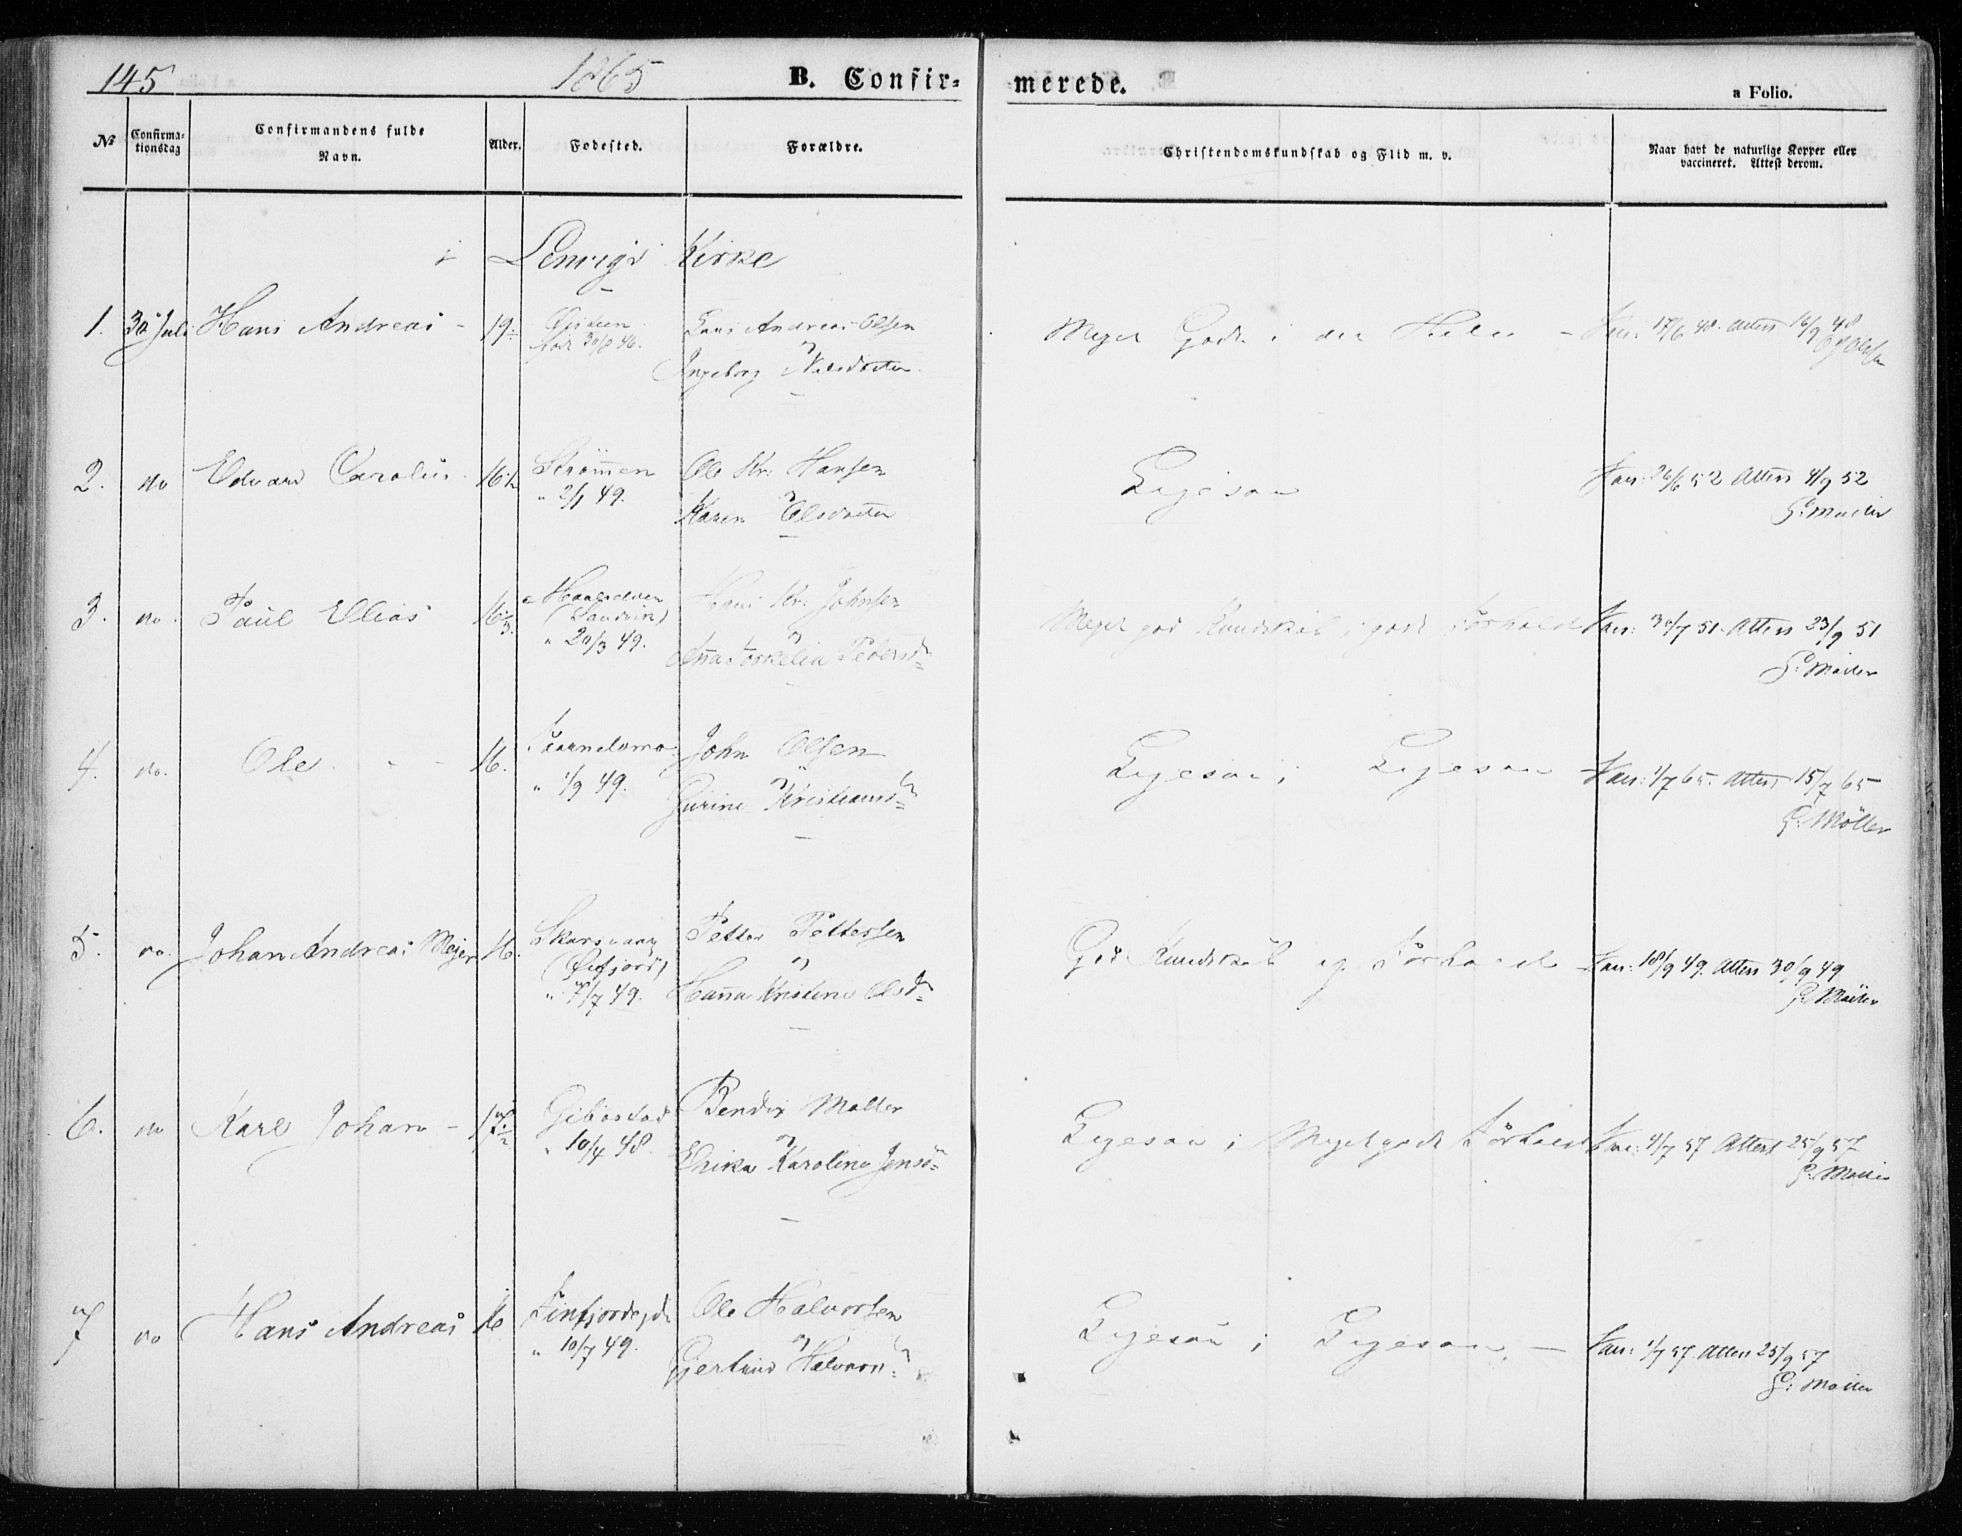 145 1865 B. Confir- merede. a Folio.
No Confirma-tionsdag Confirmandens fulde Navn. Alder. Fødested. Forældre. Christendomskundskab og Flid m. v. Naar havt de naturlige Kopper eller vaccineret. Attest derom.
i Lenvigs Kirke
1. 30 Juli Hans Andreas - 19 Hans Andreas Olsen Meget Godt i det Hele - Vac: 17/6 48. Attest 16/9 48
født 30/8 46. og Ingeborg Nilsdatter. Olsen
2. do Edvard Carolus 16 1/2 Strömmen Ole Kr. Hansen Ligesaa Vac: 26/6 52 Attest 4/9 52
" 2/1 49. og Karen Olsdatter G: Møller
3. do. Paul Elias 16 1/3. Maalselven Hans Kr. Johnsen Meget god Kundskab i godt Forhold Vac: 30/7 51. Attest 23/9 51
(Sandvik) og
" 20/3 49. Anna Torkelia Pedersd. G: Møller
4. do. Ole 16. John Olsen Ligesaa i Ligesaa Vac: 1/7 65. Attest 15/7 65
" 1/9 49. og Gurine Kristiansd. G: Møller
5. do. Johan Andreas Mejer 16. Skarsvaag Petter Pettersen God Kundskab og Forhold Vac: 18/9 49. Attest 30/9 49
(Øifjord) og
" 7/7 49. Hanna Kristine Olsd. G: Møller
6. do Karl Johan - 17 1/2 Gibostad Bendix Møller Ligesaa i Meget godt Forhold Vac: 4/7 57 Attest 25/9 57
" 10/4 48. og Erika Karoline Jensd. G: Møller
7 do Hans Andreas 16 Finfjordejde Ole Halvorsen Ligesaa i Ligesaa. - Vac: 1/7 57. Attest 25/9 57
" 10/7 49. og Gjertrud Halvorsd. G: Møller